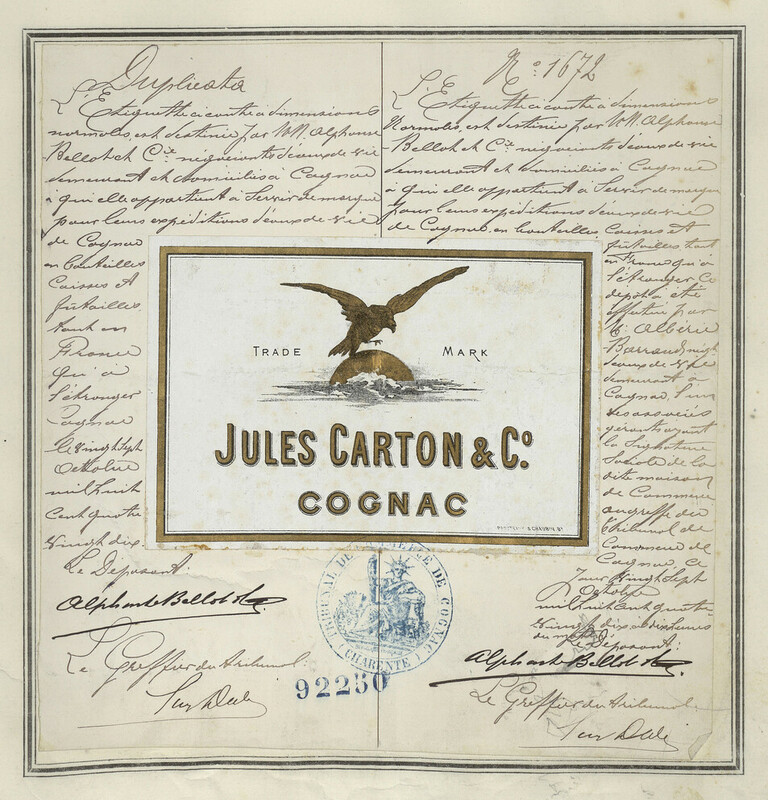 Duplicata
L'Etiquette ci contre à dimensions
normales, est destinée par MM. Alphonse
Bellot et Cie négociants d'eaux de vie
demeurant et domiciliés à Cognac
à qui elle appartient à servir de marque
pour leurs expéditions d'eaux de vie
de Cognac
en bouteilles
Caisses et
futailles
tant en
France
qu'à
l'étranger
Cognac
le vingt sept
Octobre
mil huit
cent quatre
vingt dix.
Le Déposant:
Alphonse Bellot &
Le Greffier du tribunal:
No. 1672
L'Etiquette ci contre à dimensions
Normales, est destinée par MM. Alphonse
Bellot et Cie négociants d'eaux de vie
demeurant et domiciliés à Cognac
à qui elle appartient à Servir de marque
pour leurs expéditions d'eaux de vie
de Cognac en bouteilles, Caisses et
futailles tant
en France qu'à
l'étranger Ce
dépôt a été
effectué par
M. Albéric
Barraud, négt
d'eaux de vie
demeurant à
Cognac, l'un
des associés
gérants ayant
la Signature
Sociale de la
dite maison
de Commerce
au greffe du
Tribunal de
Commerce de
Cognac, ce
jour vingt sept
Octobre
mil huit cent quatre
vingt dix à dix heures
du matin
Le Déposant:
Alphonse Bellot &
Le Greffier du tribunal
TRADE MARK
JULES CARTON & Co.
COGNAC
TRIBUNAL DE COMMERCE DE COGNAC
(CHARENTE)
92250